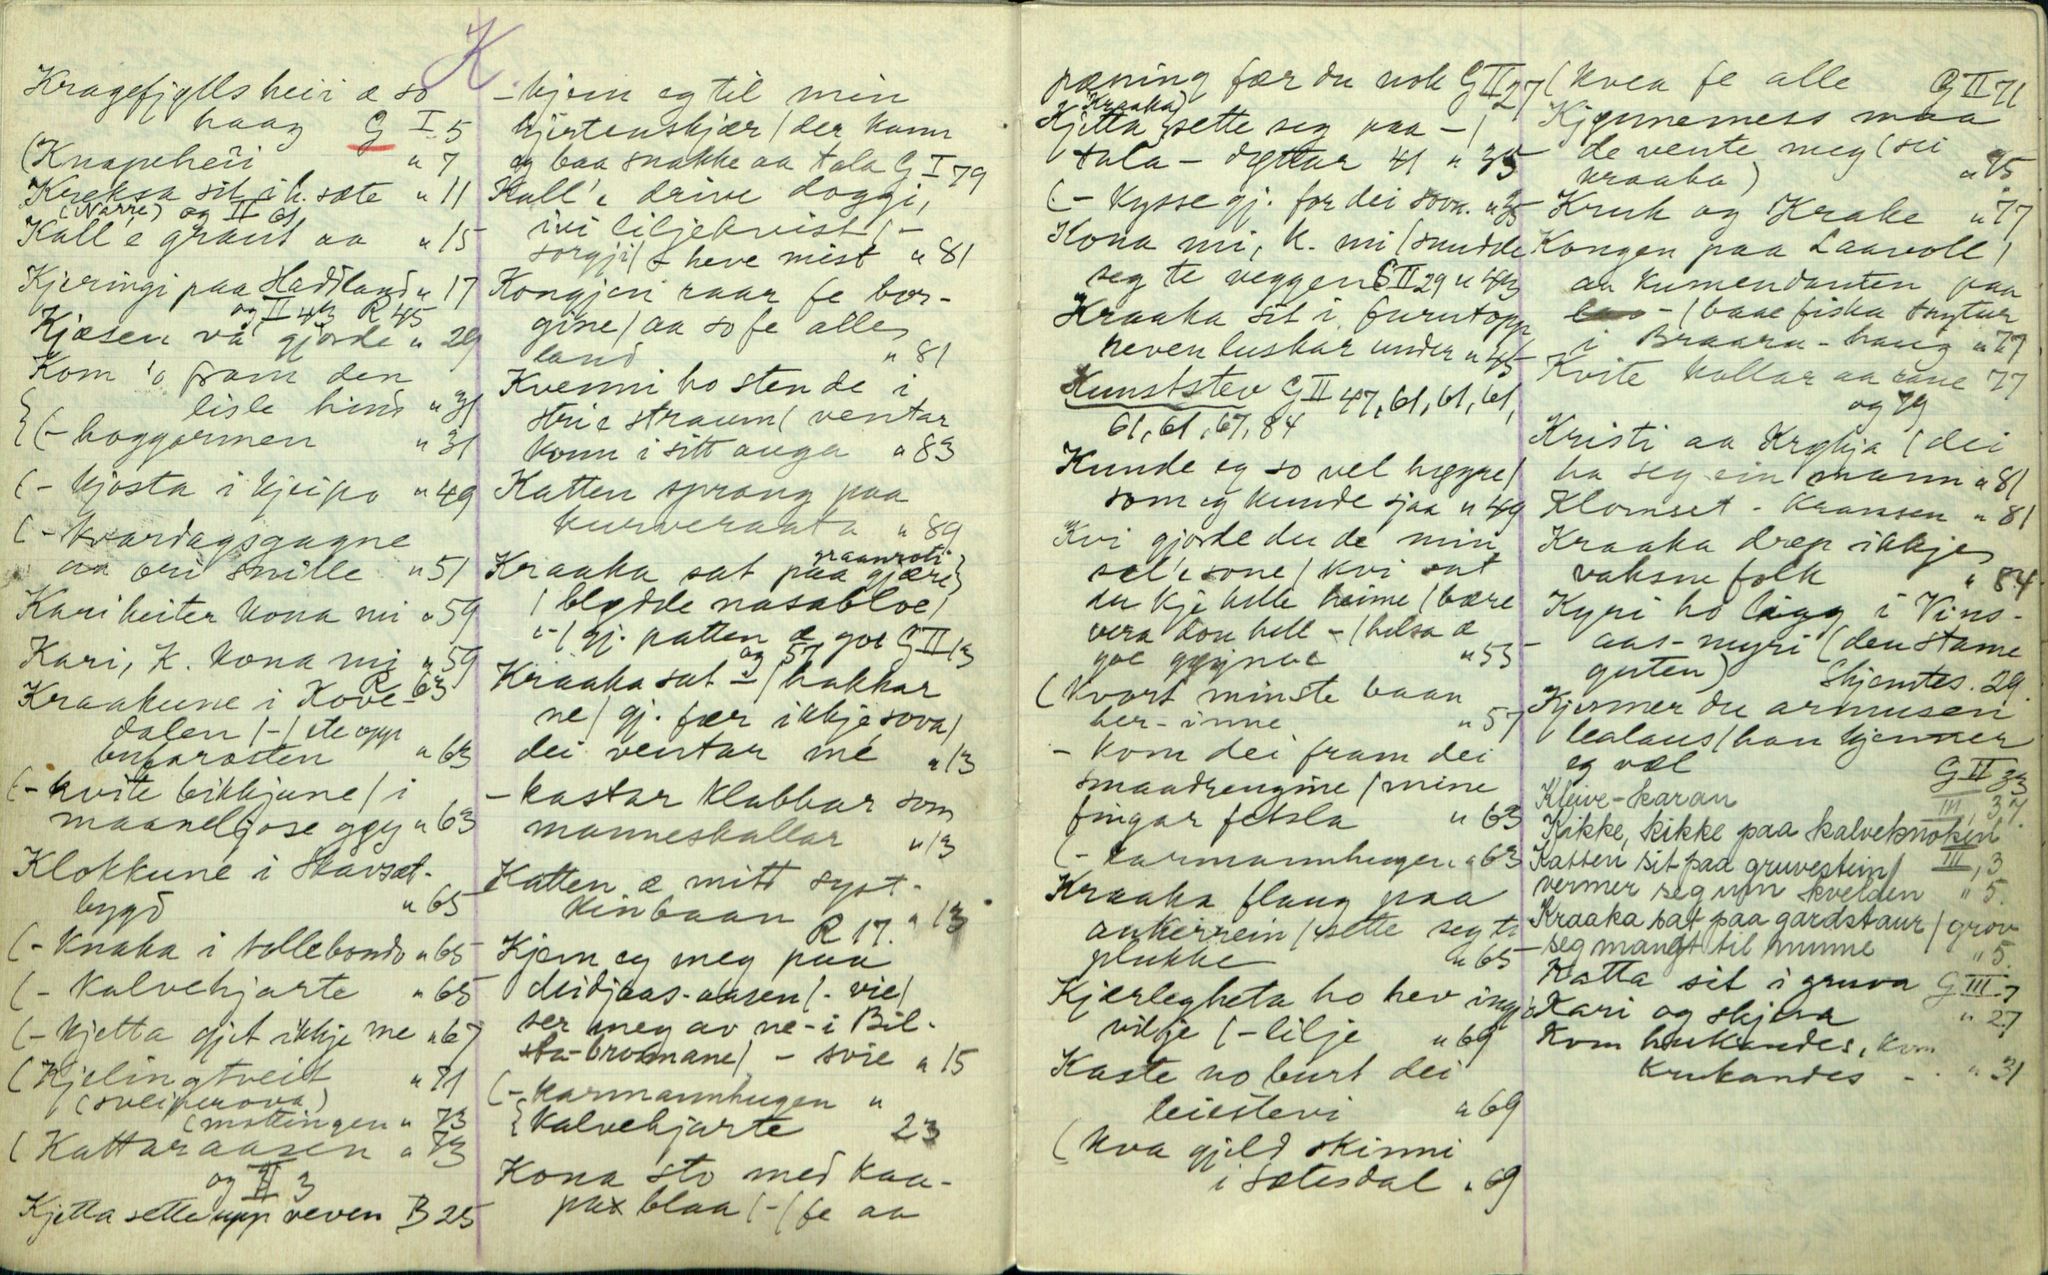 K.
Kragefjylls heii æ so
haag G I.5
(Knapeheii " 7
Kreksa sit i k. sæte " 11
(Narre) og II 61
Kall'e graut aa " 15
Kjeringi paa Haddland " 17
og II 43 R 45
Kjæsen va gjorde " 29
Kom 'o fram den
lisle hind " 31
{(- hoggormen " 31
(- kjosta i kjeipo " 49
(- kvardagsgagne
aa ori snille " 51
Kari heiter kona mi " 59
Kari, K. kona mi " 59
R 63
Kraakune i Kove-
dalen /-/ ete opp
" 63
(- kvite bikkjune / i
maaneljose " 63
Klokkune i
bygd " 65
(- Knaka i tollebondo " 65
(- Kalvehjarte " 65
(- Kjetta gjet ikkje me " 67
(Kjelingtveit " 71
(sveiperova)
(mottingen " 73
(Kattaraasen " 73
og II 3
Kjetta sette upp reven B 25
- kjem eg til min
hjertenskjær / der kann
eg baa snakke aa tala G I 79
Kall'e drive doggi,
ivi liljekvist / -
sorgji / - heve mist " 81
Kongjen raar fe bor-
gine / aa so fe alle
land " 81
Kvenni ho stend e i
stri e straum / ventar
konn i sitt auga " 83
Katten sprang paa
kurveraata " 89
graanroti
Kraaka sat paa gjære
/ blødde nasabloe /
- / gj. patten æ goe G II 13
og 57
Kraaka sat - / hakkar
ne / gj. fær ikkje sova /
dei ventar me " 13
- kastar klabbar som
manneskallar " 13
Katten æ mitt syst-
kinbaan R 17. " 13
Kjem eg meg paa
-aasen / - vie /
ser meg av ne - i Bil-
/ - svie " 15
(- karmannhugen "
{ Kalvehjarte 23
Kona sto med kaa-
pax blaa / - / fe aa
pæning fær du nok G II 27
(kraaka)
Kjetta sette seg paa - /
tala - dottar 41 " 35
(- kysse gj. for dei sova. " 35
Kona mi, k. mi / snudde
seg te veggen S II 29 " 43
Kraaka sit i furutopp
reven luskar under " 45
Kunststev G II 47, 61, 61, 61,
61, 61, 67, 84
Kunde eg so vel høgre /
som eg kunde sjaa " 49
Kvi gjorde du de min
sæl'e sone / kvi sat
du kje helle heime / bære
vera don hell - / helsa æ
goe " 53
(Kvart minste baan
her-inne " 57
- kom dei fram dei
smaadrengine / mine
fingar fetsla " 63
(- karmannhugen " 63
Kraaka flaug paa
aukerrein / sette seg te
plukke " 65
Kjerlegheta ho hev ingji
vilje / - lilje " 69
Kaste no burt dei
leiestevi " 69
(Kva gjeld skinni
i Sætesdal " 69
(Kven fe alle G II 71
Kjønnemess maa
de vente meg (sei
kraaka) " 75
Kruk og Krake " 77
Kongen paa Laavoll /
aa kumendanten paa
- / baae fiska snytur
i Braara-haug " 77
Kvite kollar aa rane 77
og 79
Kristi aa Krøkja / dei
ha seg ein mann " 81
Klomset-kransen " 81
Kraaka drep ikkje
vaksne folk " 84
Kyri ho lægg i Vins-
aas-myri (den stame
guten) Skjemtes. 29.
Kjenner du armusen
lealaus / han kjenner
eg væl G II 33
Kleive-karan III, 37.
Kikke, kikke paa kalveknoken
III, 3
Katten sit paa gruvestein /
vermer seg um kvelden " 5.
Kraaka sat paa gardstaur / grov
- seg mangt til minne " 5.
Katta sit i gruva G III. 7
Kari og skjera " 27
Kom huskandes, kom
krukandes - . " 31